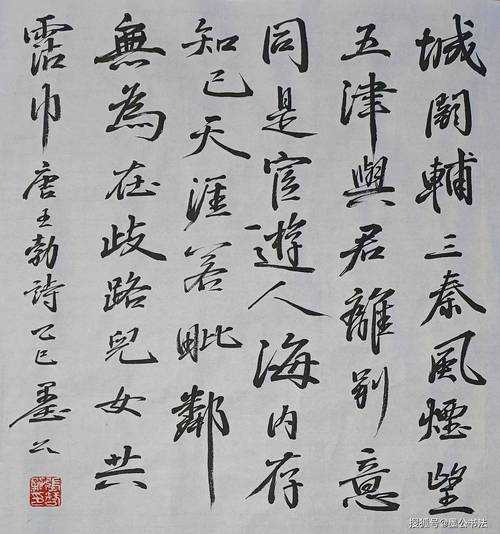 城闕輔三秦風煙望
五津與君離別意
同是宦遊人海内存
知己天涯若毗鄰
無為在歧路兒女共
霑巾唐王勃詩乙巳墨公
搜狐号@墨公书法